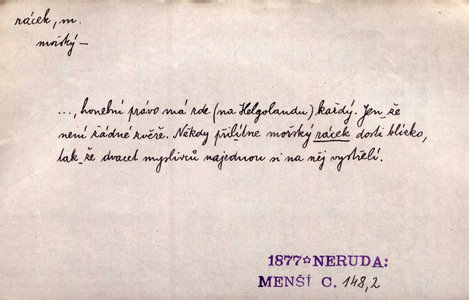 rácek, m.
mořský –
..., honební právo má zde (na Helgolandu) každý. Jen_že
není žádné zvěře. Někdy přilítne mořský rácek dosti blízko,
tak_že dvacet myslivců najednou si na něj vystřelí.
1877☆NERUDA:
MENŠÍ C. 148,2